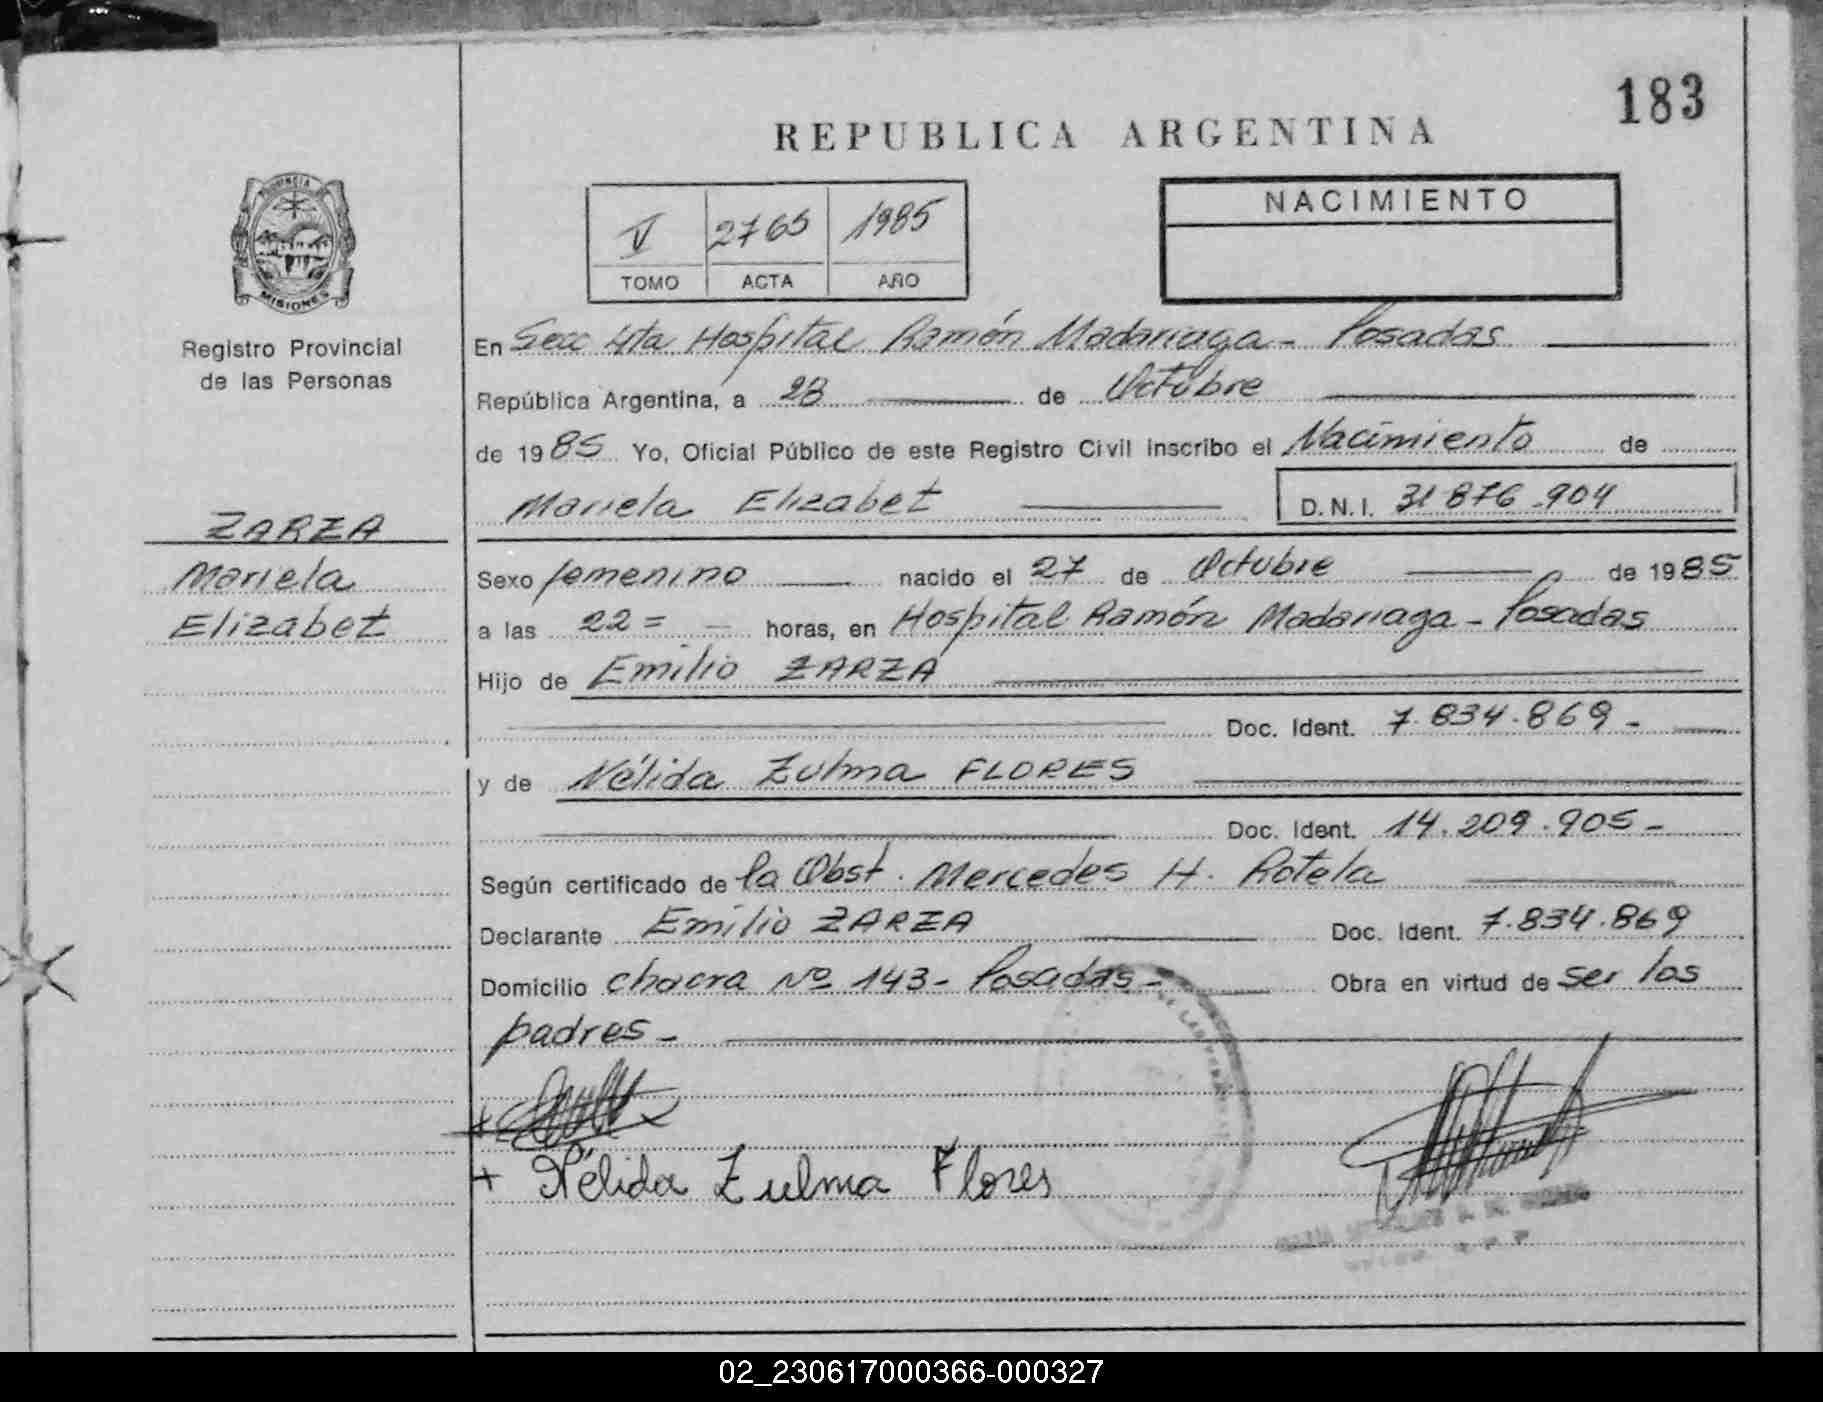 183
REPUBLICA ARGENTINA
PROVINCIA DE
MISIONES
V 2765 1985
TOMO ACTA AÑO
NACIMIENTO
Registro Provincial
de las Personas
En Secc 4ta Hospital Ramón Madariaga - Posadas
República Argentina, a 28 de Octubre
de 1985 Yo, Oficial Público de este Registro Civil inscribo el Nacimiento de
Mariela Elizabet D.N.I. 31 876.904
ZARZA
Mariela
Elizabet
Sexo femenino nacido el 27 de Octubre de 1985
a las 22 = horas, en Hospital Ramón Madariaga - Posadas
Hijo de Emilio ZARZA
Doc. Ident. 7.834.869 -
y de Nélida Zulma FLORES
Doc. Ident. 14.209.905 -
Según certificado de la Obst. Mercedes H. Rotela
Declarante Emilio ZARZA Doc. Ident. 7.834.869
Domicilio chacra Nº 143 - Posadas - Obra en virtud de ser los
padres -
+ Nélida Zulma Flores
02_230617000366-000327